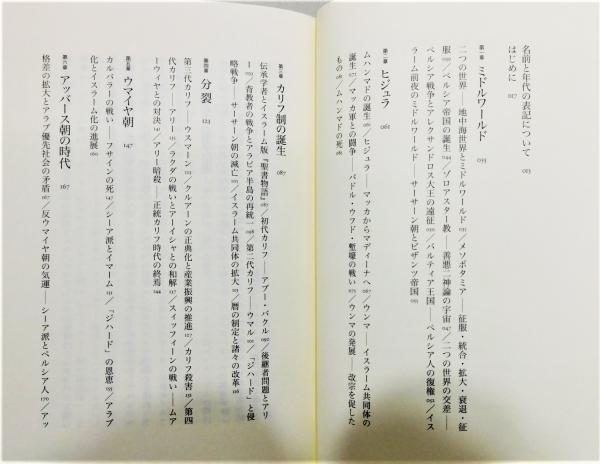 名前と年代の表記について 013
はじめに 017
第一章 ミドルワールド 033
二つの世界――地中海世界とミドルワールド 033/メソポタミア――征服・統合・拡大・衰退・征
服 039/ペルシア帝国の誕生 044/ゾロアスター教――善悪二神論の宇宙 047/二つの世界の交差――
ペルシア戦争とアレクサンドロス大王の遠征 051/パルティア王国――ペルシア人の復権 052/イス
ラーム前夜のミドルワールド――サーサーン朝とビザンツ帝国 055
第二章 ヒジュラ 061
ムハンマドの誕生 061/ヒジュラ――マッカからマディーナへ 067/ウンマ――イスラーム共同体の
誕生 071/マッカ軍との闘争――バドル・ウフド・塹壕の戦い 075/ウンマの発展――改宗を促した
もの 081/ムハンマドの死 085
第三章 カリフ制の誕生 087
伝承学者とイスラーム版『聖書物語』 087/初代カリフ――アブー・バクル 091/後継者問題とアリ
ー 093/背教者の戦争とアラビア半島の再統一 098/第二代カリフ――ウマル 101/「ジハード」と侵
略戦争――サーサーン朝の滅亡 105/イスラーム共同体の拡大 113/暦の制定と諸々の改革 116
第四章 分裂 123
第三代カリフ――ウスマーン 123/クルアーンの正典化と産業振興の推進 127/カリフ殺害 132/第四
代カリフ――アリー 135/ラクダの戦いとアーイシャとの和解 137/スィッフィーンの戦い――ムア
ーウィヤとの対決 141/アリー暗殺――正統カリフ時代の終焉 144
第五章 ウマイヤ朝 147
カルバラーの戦い――フサインの死 147/シーア派とイマーム 153/「ジハード」の恩恵 155/アラブ
化とイスラーム化の進展 160
第六章 アッバース朝の時代 167
格差の拡大とアラブ優先社会の矛盾 167/反ウマイヤ朝の気運――シーア派とペルシア人 170/アッ